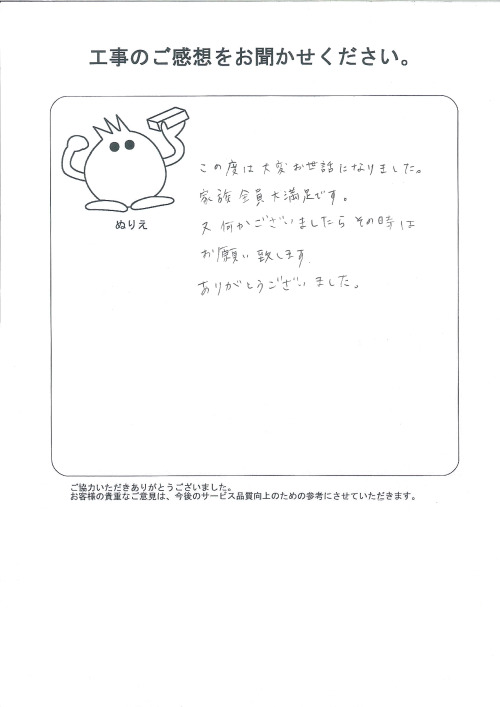 工事のご感想をお聞かせください。
ぬりえ
この度は大変お世話になりました。
家族全員大満足です。
又何かございましたらその時は
お願い致します.
ありがとうございました。
ご協力いただきありがとうございました。
お客様の貴重なご意見は、今後のサービス品質向上のための参考にさせていただきます。